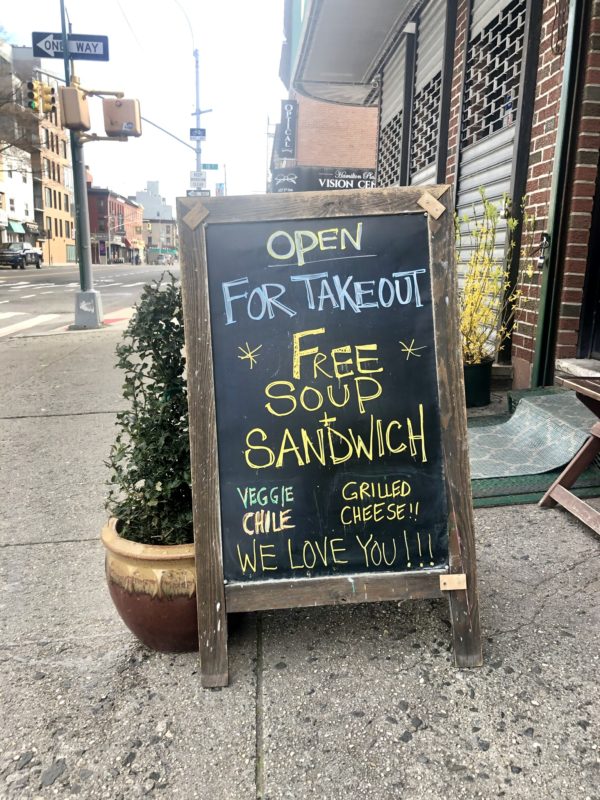 ONE WAY
OPTICAL
Hamilton
VISION
OPEN
FOR TAKEOUT
* FREE *
SOUP
+
SANDWICH
VEGGIE
CHILE
GRILLED
CHEESE!!
WE LOVE YOU!!!